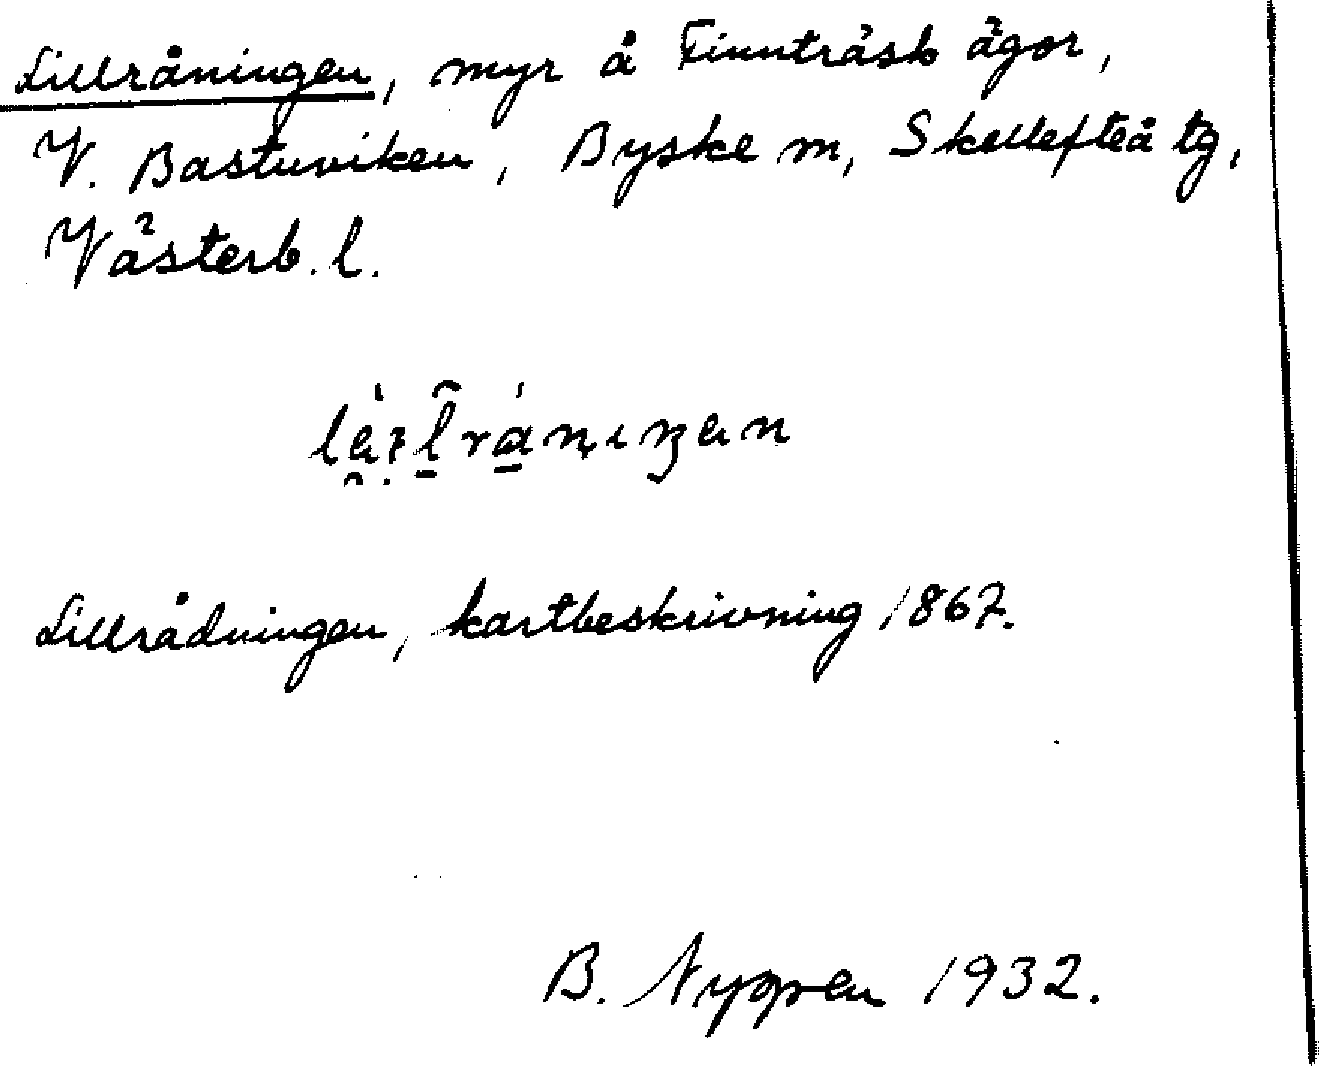 Lillråningen, myr å Finnträsk ägor,
V. Bastuviken, Byske sn, Skellefteå tg,
Västerb. l.
Lillrådningen, kartbeskrivning 1867.
B. Nygren 1932.